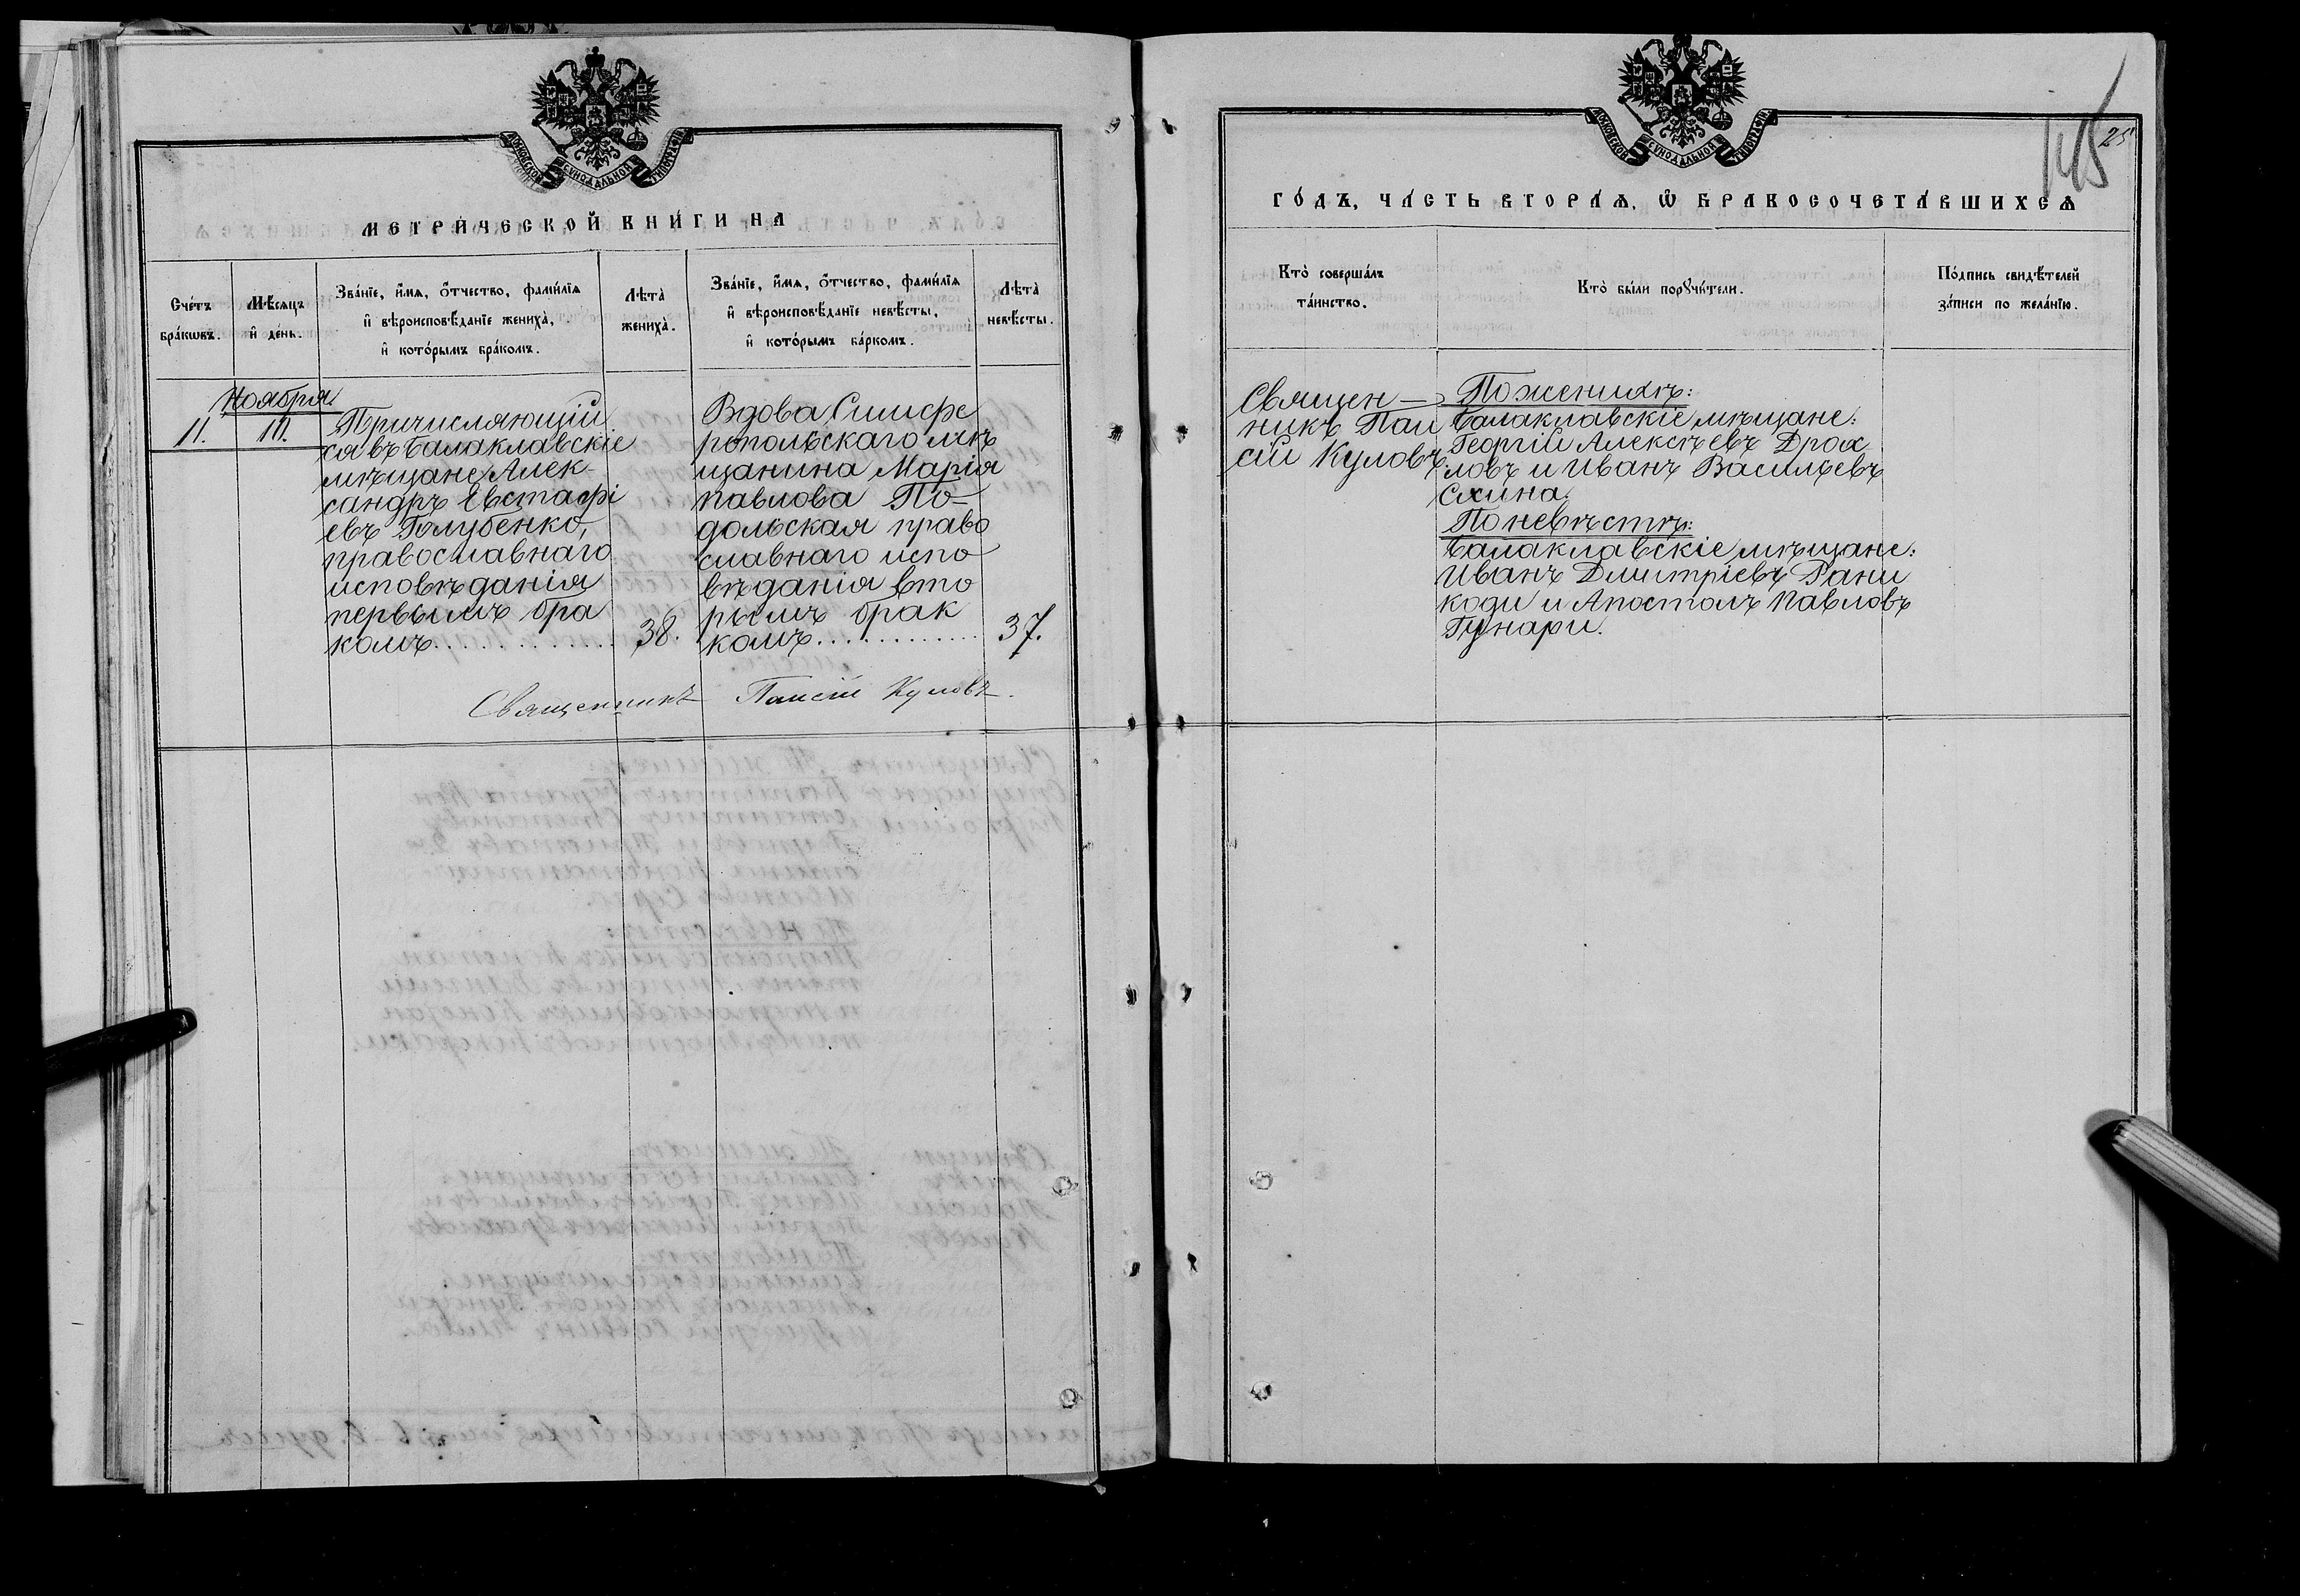 МОСКОВСКОЙ СѴНОДАЛЬНОЙ ТИПОГРАФІИ
МЕТРИ́ЧЕСКОЙ КНИ́ГИ НА
Сче́тъ бра́кѡвъ.
Мѣ́сяцъ и҆ де́нь.
Зва́нїе, и҆́мѧ, ѻ҆́тчество, фами́лїѧ
и҆ вѣроисповѣ́данїе жениха̀,
и҆ кото́рымъ бра́комъ.
Лѣта̀
жениха̀.
Зва́нїе, и҆́мѧ, ѻ҆́тчество, фами́лїѧ
и҆ вѣроисповѣ́данїе невѣ́сты,
и҆ кото́рымъ ба́ркомъ.
Лѣта̀
невѣ́сты.
Ноября.
11.
10.
Причисляющій
ся въ Балаклавскіе
мѣщане Алек-
сандръ Евстафі
евъ Голубенко,
православнаго
исповѣданія
первымъ бра
комъ............
38.
Вдова Симфе
ропольскаго мѣ
щанина Марія
Павлова По-
дольская право
славнаго испо
вѣданія вто
рымъ брак
комъ............
37.
Священникъ Паисій Куловъ.
МОСКОВСКОЙ СѴНОДАЛЬНОЙ ТИПОГРАФІИ
145
25
ГО́ДЪ, ЧА́СТЬ ВТОРА́Ѧ, Ѡ҆ БРАКОСОЧЕТА́ВШИХСѦ
Кто̀ соверша́лъ
та́инство.
Кто̀ бы́ли порꙋчи́тели.
По́дпись свидѣ́телей
за́писи по жела́нїю.
Священ-
никъ Паи
сій Куловъ.
По женихѣ:
Балаклавскіе мѣщане:
Георгій Алексѣевъ Драх
ловъ и Иванъ Васильевъ
Схина.
По невѣстѣ:
Балаклавскіе мѣщане:
Иванъ Дмитріевъ Рани
коди и Апостолъ Павловъ
Гунари.